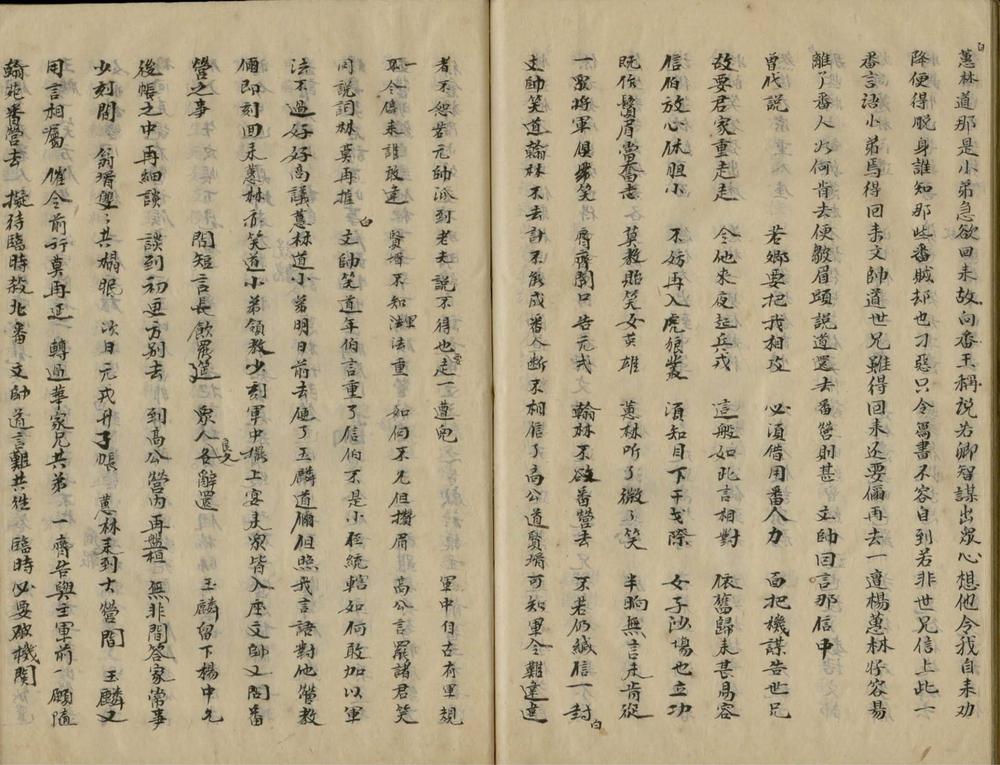 蕙林道那是小弟急欲回来故向番王稱説若卿智謀出眾心想他令我自来劝
降便得脱身誰知那些番贼却也刁惡只令寫書不容自到若非世兄信上此一
番言語小弟焉得回来文帥道世兄雖得回来还要偏再去一遭楊蕙林好容易
離了番人火何肯去便皺眉頭説道還去番營則甚 文帥回言那信中
曾代説 若娜要把我相攻 必須借用番人力 面把機謀告世兄
故要君家重走走 令他来夜起兵戎 這般如此言相對 依舊歸来甚易容
信伯放心休胆小 不妨再入虎狼叢 須知目下干戈際 女子沙場也立功
既作鬚眉當奮志 莫教貽笑女英雄 蕙林听了微了笑 半晌無言未肯從
一眾將軍俱発笑 齊齊開口告元戎 翰林不欲番營去 不若仍緘信一封
白
文帥笑道翰林不去計不能成番人断不相信了高公道賢壻可知軍令難違違
者不恕若元帥派到老夫説不得也要走一遭兒 軍中自古有軍規
一令傳来誰敢違 賢壻不知軍法重 如何不允但攢眉 高公言罷諸君笑
同説詞林莫再推 白 文帥笑道年伯言重了信伯不是小侄統轄如何敢加以軍
法不過好好商議蕙林道小弟明日前去便了玉麟道倆但照我言語對他管教
倆即刻回来蕙林亦笑道小弟領教少刻軍中擺上宴来眾皆入座文帥又問番
營之事 問短言長飲罷筵 眾人各辭還 玉麟留下楊中允
後帳之中再細談 談到初更方別去 到高公營内再盤桓 無非問答家常事
少刻間 翁壻雙雙共榻眠 次日元戎升了帳 蕙林来到大營間 玉麟又
用言相屬 催令前行莫再延 轉過華家兄共弟 一齊告與主軍前 願隨
翰林番營去 擬待臨時殺北番 文帥道言難共往 臨時必要破機関